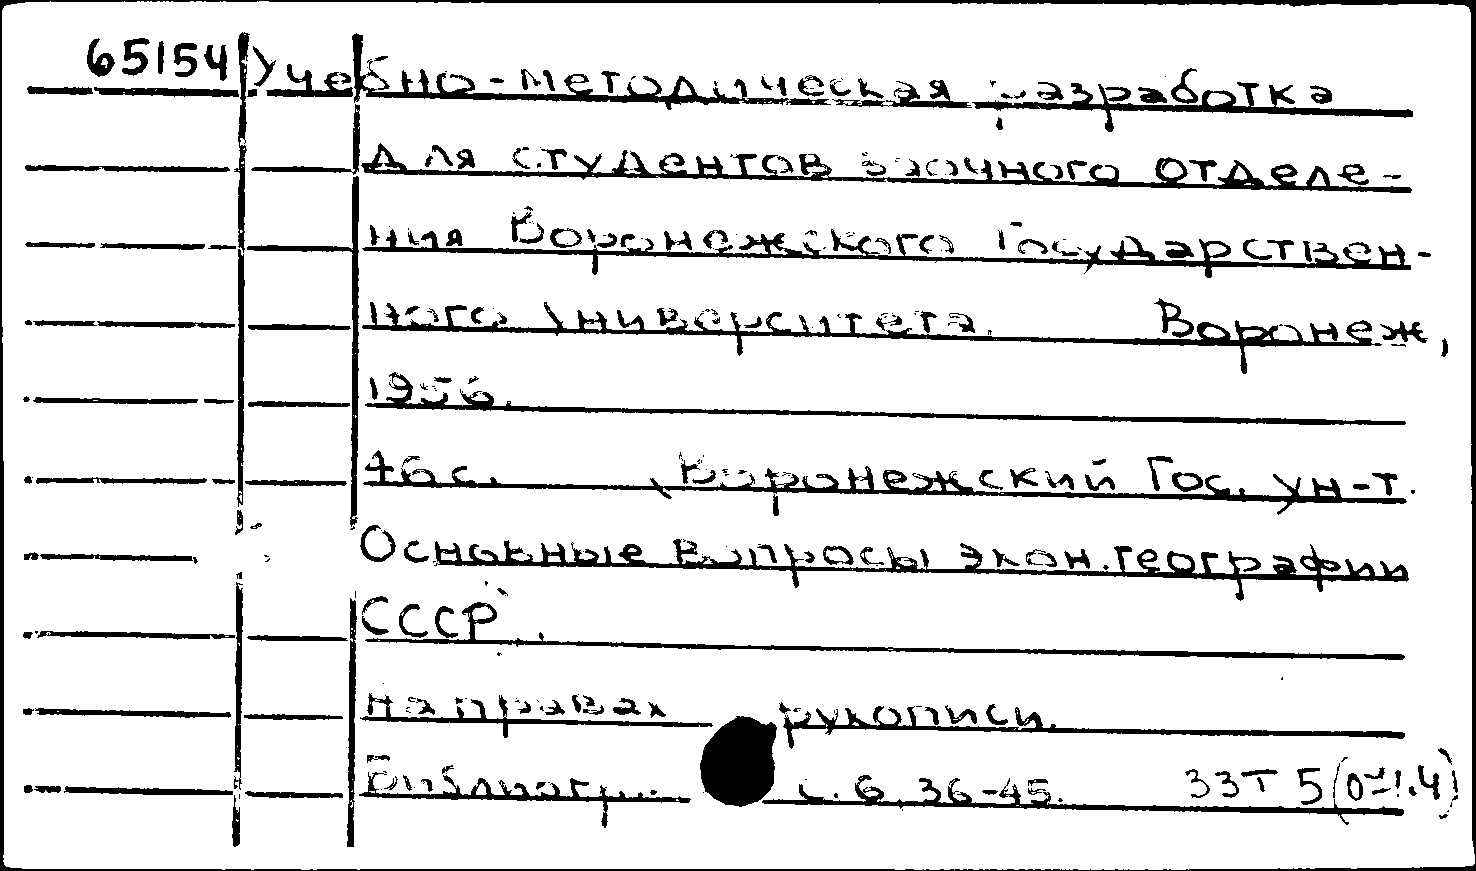 65154 Учебно-методическая разработка
для студентов заочного отделе-
ния Воронежского Государствен-
ного Университета. Воронеж,
1956.
46 с. (Воронежский Гос. ун-т.
Основные вопросы экон. географии
СССР).
На правах рукописи.
Библиогр.: с. 6, 36-45. 33Т5